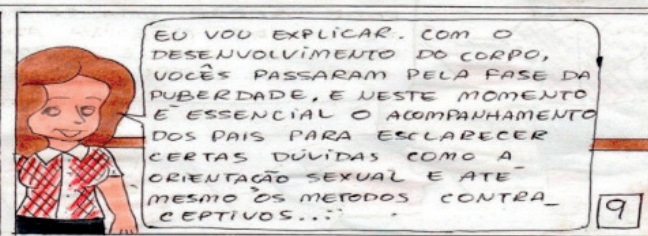 EU VOU EXPLICAR. COM O
DESENVOLVIMENTO DO CORPO,
VOCÊS PASSARAM PELA FASE DA
PUBERDADE, E NESTE MOMENTO
É ESSENCIAL O ACOMPANHAMENTO
DOS PAIS PARA ESCLARECER
CERTAS DÚVIDAS COMO A
ORIENTAÇÃO SEXUAL E ATÉ
MESMO OS METODOS CONTRA_
CEPTIVOS...
9